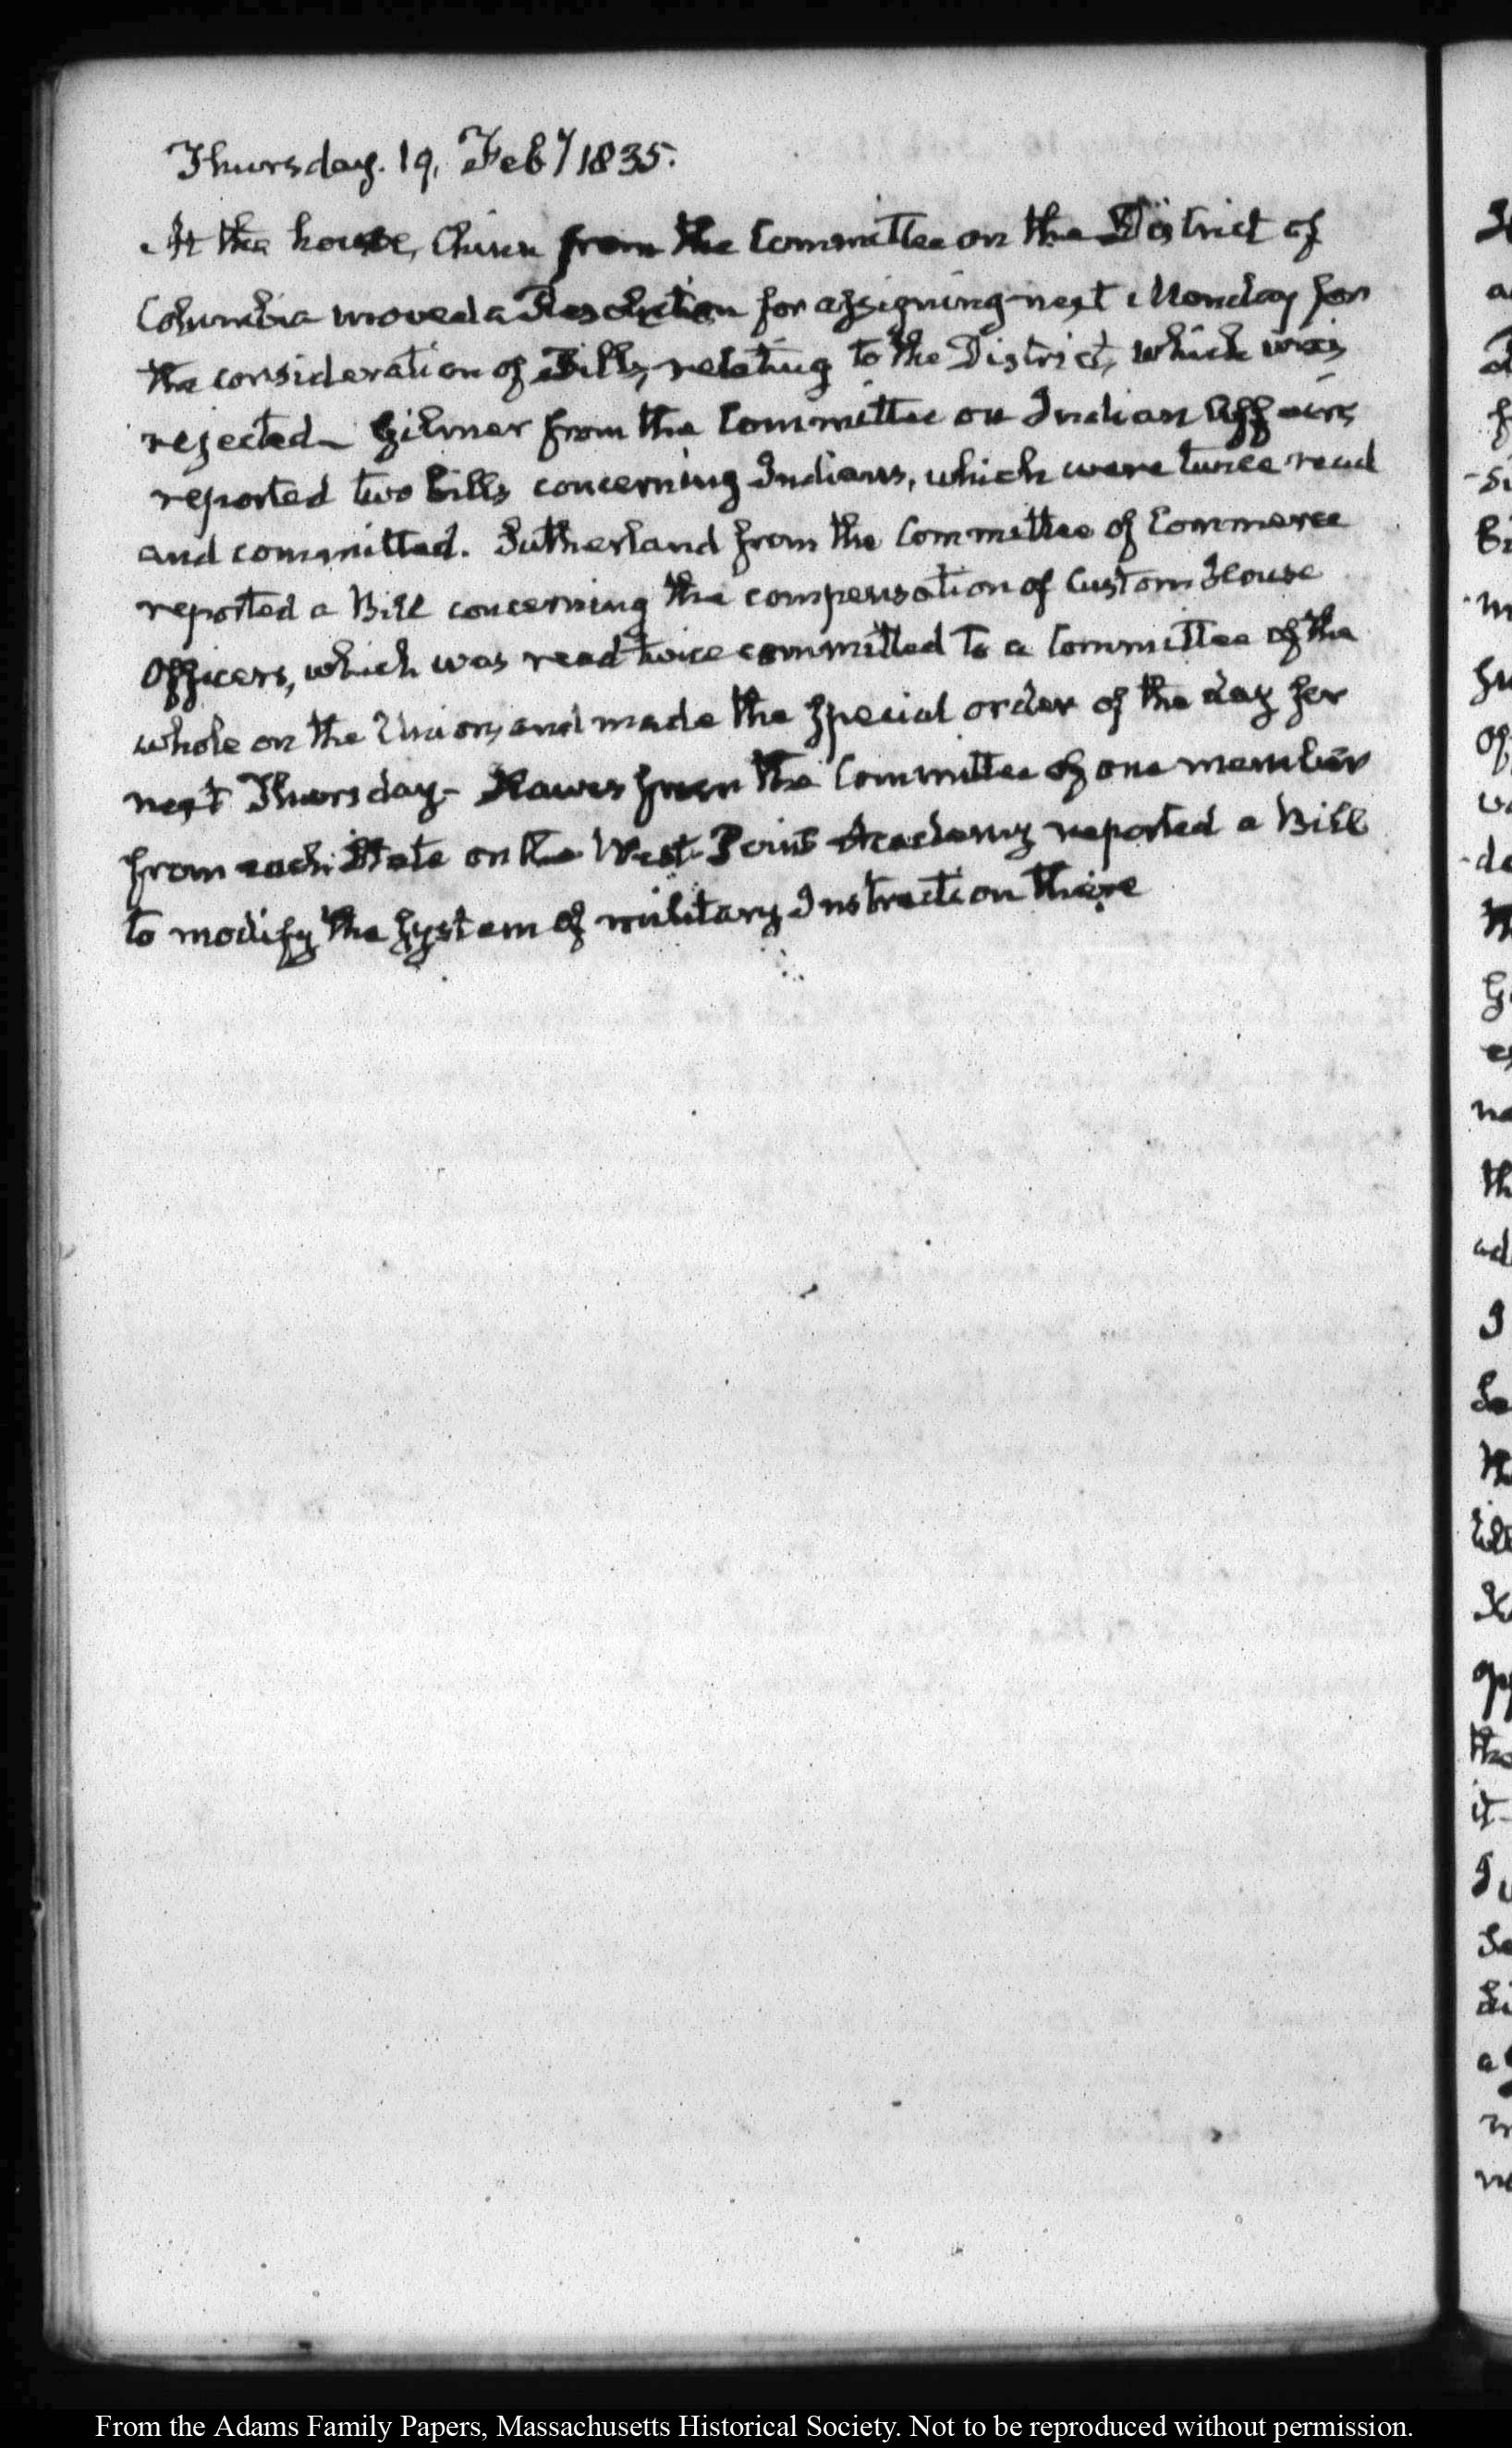 Thursday. 19. Feby 1835.
At the house, Chinn from the Committee on the District of
Columbia moved a Resolution for assigning next Monday for
the consideration of Bills, relating to the District, which was
rejected— Gilmer from the Committee on Indian Affairs
reported two bills concerning Indians, which were twice read
and committed. Sutherland from the Committee of Commerce
reported a Bill concerning the compensation of Custom House
Officers, which was read twice committed to a Committee of the
whole on the Union, and made the special order of the day for
next Thursday— Hawes from the Committee of one member
from each State on the West-Point Academy reported a Bill
to modify the system of military Instruction there
From the Adams Family Papers, Massachusetts Historical Society. Not to be reproduced without permission.